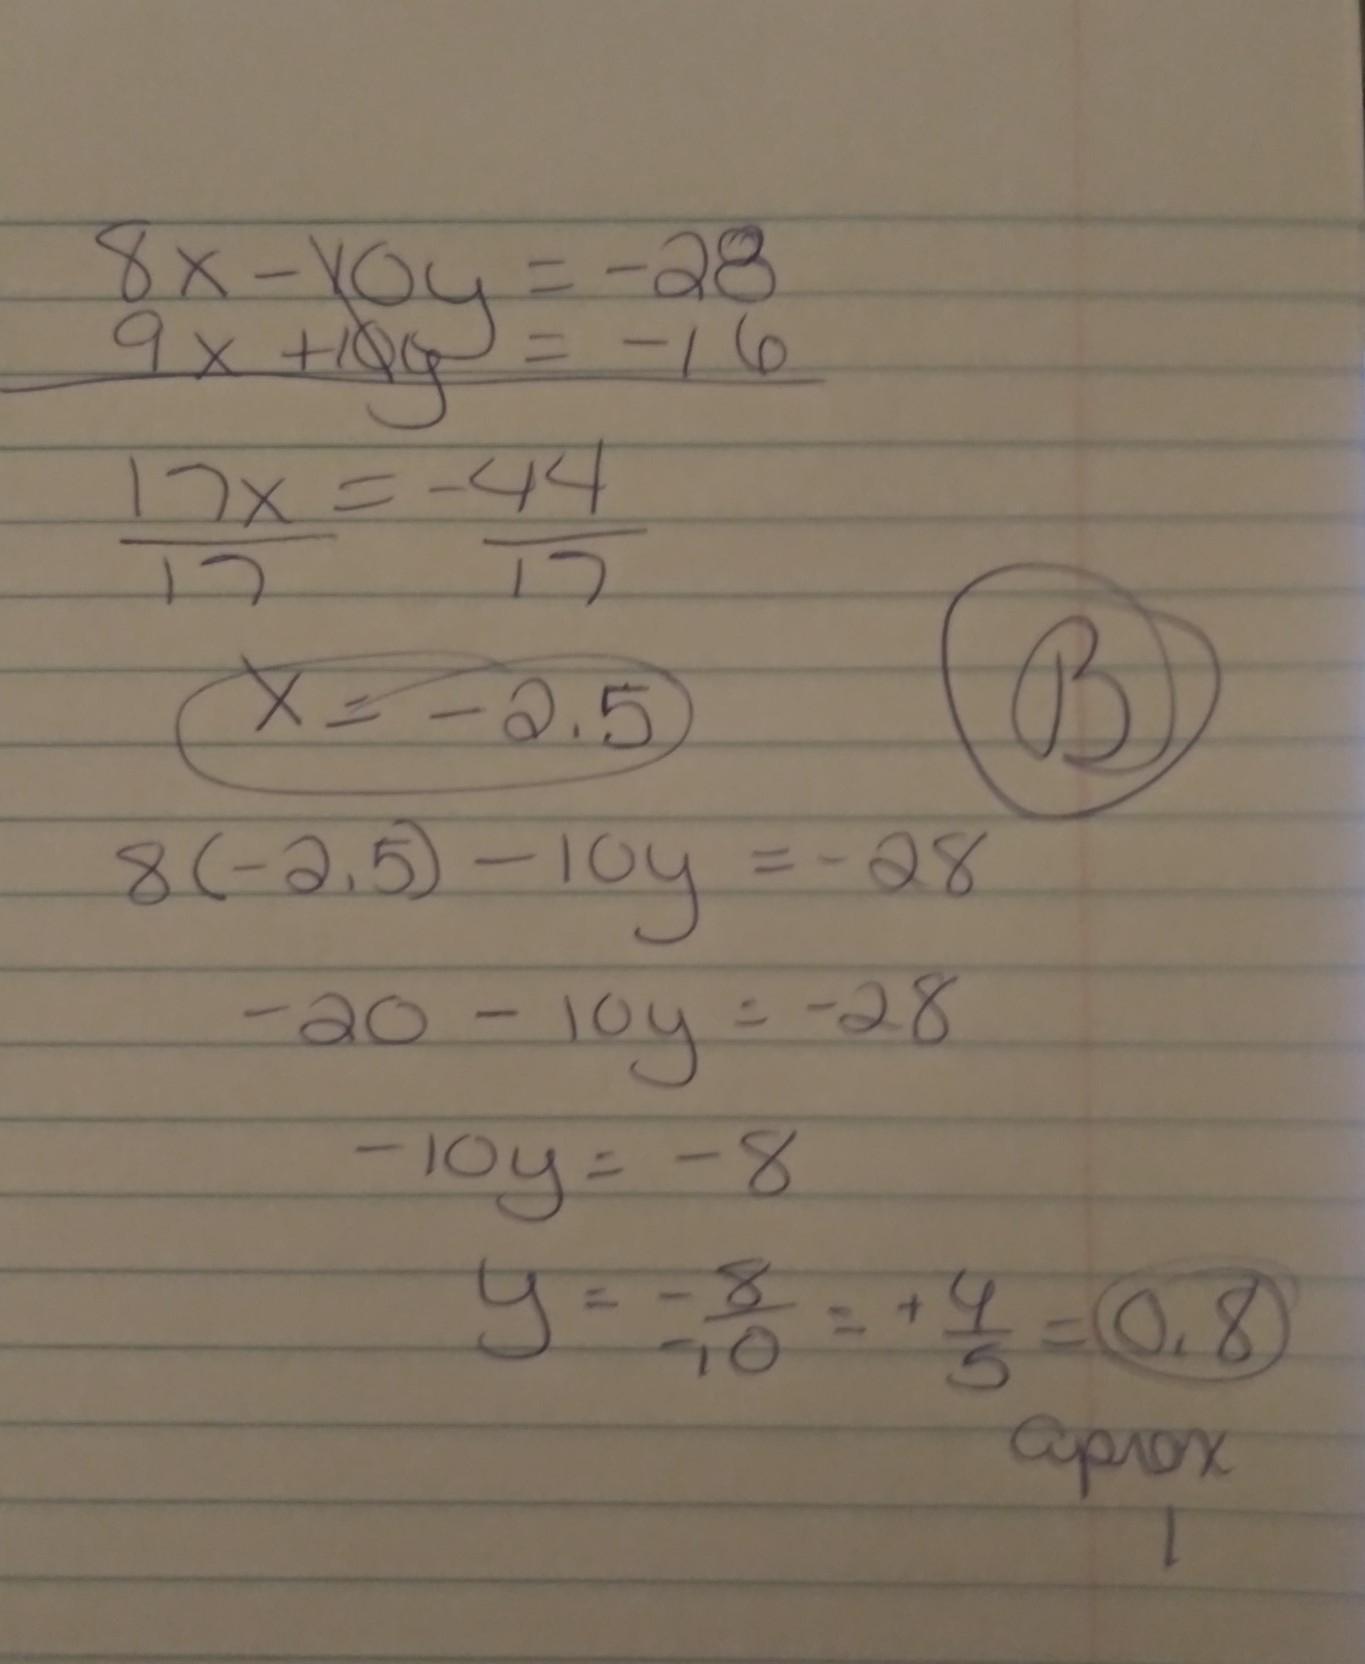 8x - 10y = -28
9x + 10y = -16
17x = -44
17 17
x = -2.5
B
8(-2.5) - 10y = -28
-20 - 10y = -28
-10y = -8
y = -8/-10 = +4/5 = 0.8
aprox
1